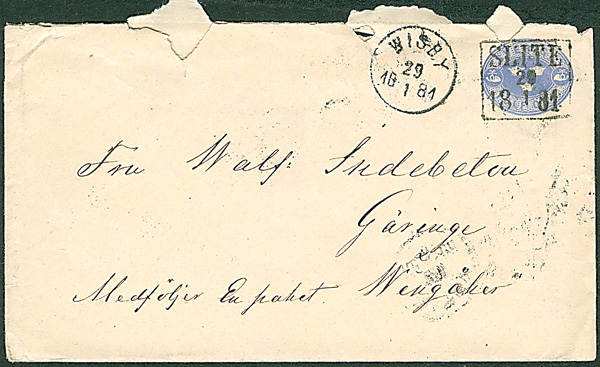 WISBY
29
18 1 81
SLITE
29
18 1 81
Fru Walf: Indebetou
Gäringe
Medföljer En paket. Wingåker